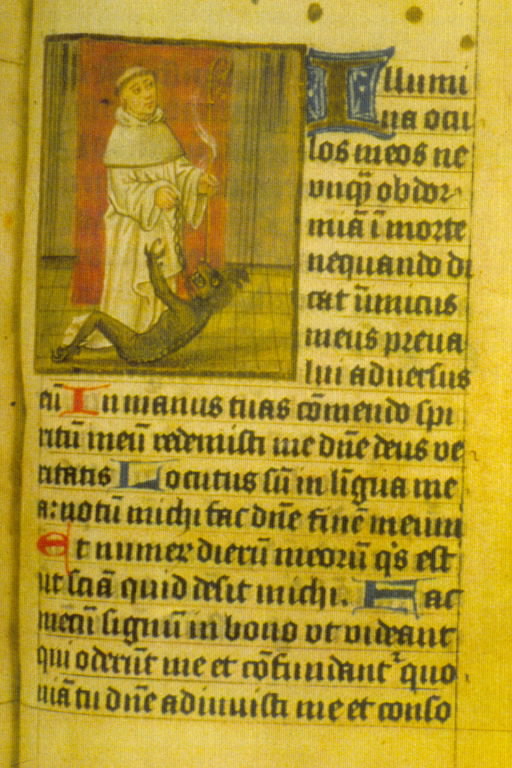 Illumi
na ocu
los meos ne
vnqȝ obdor
miā ī morte
nequando di
cat īīmicus
meus preua
lui aduersus
eū In manus tuas cōmendo spi
ritū meū redemisti me dn̄e deus ve
ritatis Locutus sū in līgua me
a: notū michi fac dn̄e finē meum
Et numeꝝ dierū meorū q's est
ut sciā quid desit michi. Fac
mecū signū in bono vt videant
qui oderūt me et cōfundant² quo
niā tu dn̄e adiuuisti me et conso